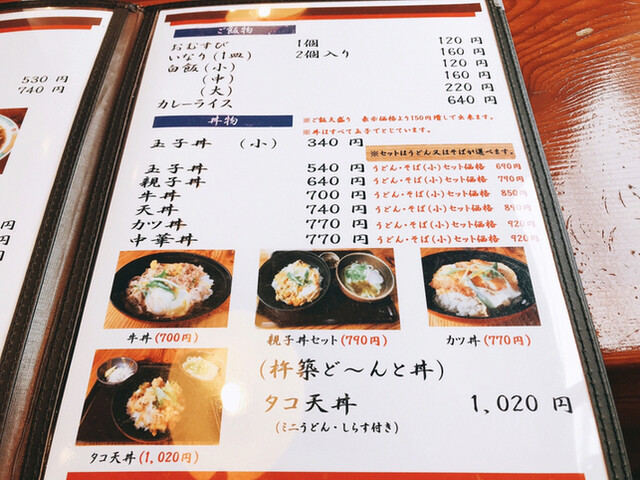 530 円
740 円
ご飯物
おむすび 1個 120 円
いなり(1皿) 2個入り 160 円
白飯(小) 120 円
(中) 160 円
(大) 220 円
カレーライス 640 円
丼物
※ご飯大盛り 表示価格より150円増しで出来ます。
※丼はすべて玉子でとじています。
玉子丼 (小) 340 円
※セットはうどん又はそばが選べます。
玉子丼 540 円 うどん・そば(小)セット価格 690円
親子丼 640 円 うどん・そば(小)セット価格 790円
牛丼 700 円 うどん・そば(小)セット価格 850円
天丼 740 円 うどん・そば(小)セット価格 890円
カツ丼 770 円 うどん・そば(小)セット価格 920円
中華丼 770 円 うどん・そば(小)セット価格 920円
牛丼(700円)
親子丼セット(790円)
カツ丼(770円)
(杵築ど〜んと丼)
タコ天丼 1,020 円
(ミニうどん・しらす付き)
タコ天丼(1,020円)